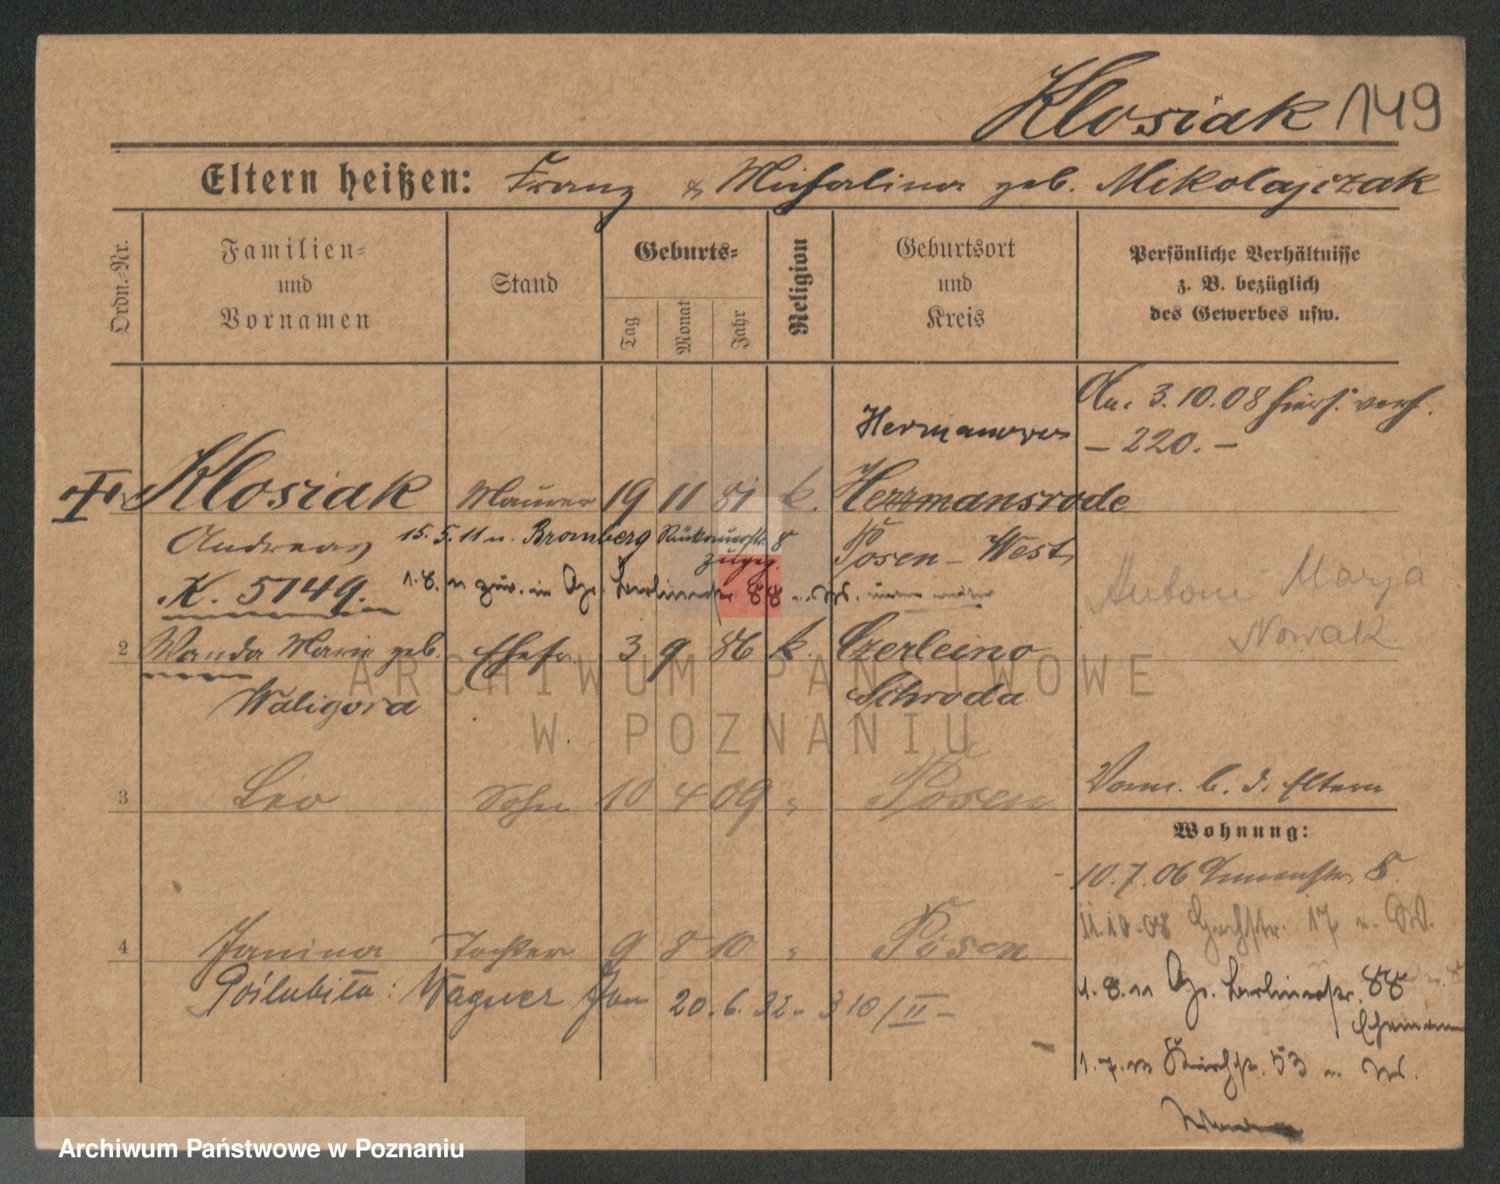 Klosiak 149
Eltern heißen: Franz & Michalina geb. Mikolajczak
Ordn.-Nr.
Familien-
und
Vornamen
Stand
Geburts-
Tag
Monat
Jahr
Religion
Geburtsort
und
Kreis
Persönliche Verhältnisse
z. B. bezüglich
des Gewerbes usw.
3.10.08
Hermanowo
– 220. –
Klosiak Maurer 19 11 81 k. Herrmansrode
Andreas 15.5.11 n. Bromberg 8
zugez.
Posen-West
K. 5149. 1.8.11 zur. in Berlinerstr. 88
Antoni Marya
Nowak
2 Wanda Marie geb. Ehefr 3 9 86 k. Czerleino
Waligora Schroda
3 Leo Sohn 10 4 09 " Posen
b. d. Eltern
Wohnung:
10.7.06 8.
11.10.08 17
4 Janina Tochter 9 8 10 " Posen
Poślubiła: Wagner Jan 20.6.32 – 310/II –
1.8.11 Berlinerstr. 88
Ehemann
53
ARCHIWUM PAŃSTWOWE
W POZNANIU
Archiwum Państwowe w Poznaniu